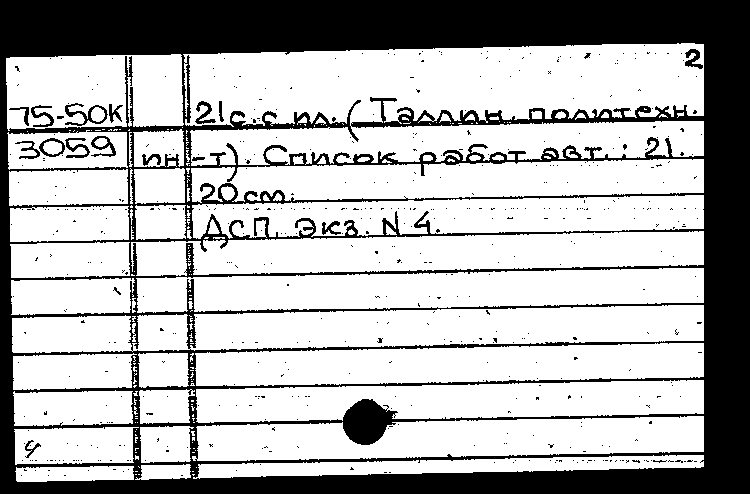 2
75-50к 21с. с ил. (Таллин. политехн.
3059 ин-т). Список работ авт.: 21.
20см.
ДСП. Экз. N 4.